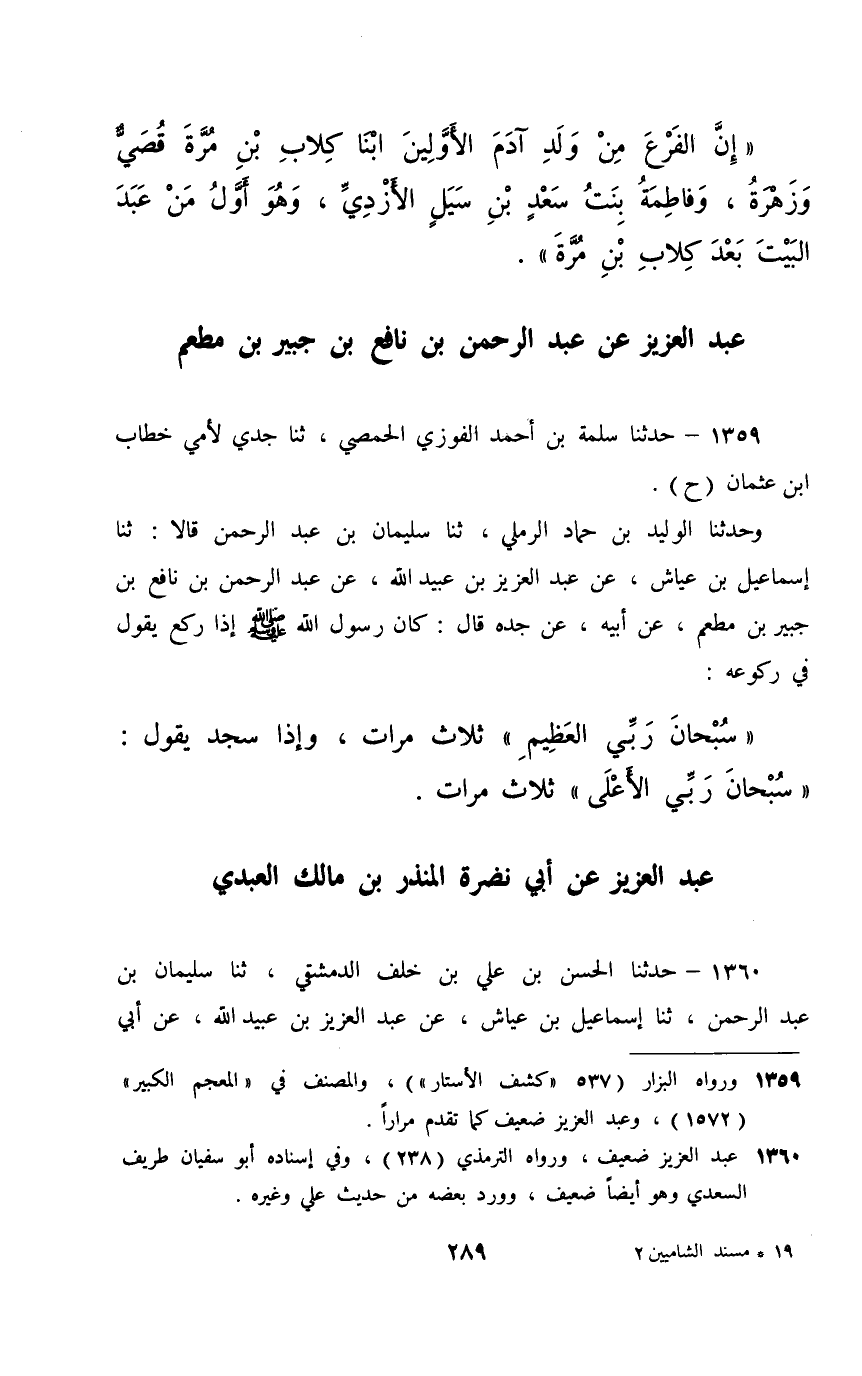 « إِنَّ الفَرْعَ مِنْ وَلَدِ آدَمَ الأَوَّلِينَ ابْنَا كِلابِ بْنِ مُرَّةَ قُصَيٌّ
وَزَهْرَةُ ، وَفاطِمَةُ بِنَتُ سَعْدٍ بْنِ سَيَلٍ الأَزْدِيِّ ، وَهُوَ أَوَّلُ مَنْ عَبَدَ
البَيْتَ بَعْدَ كِلابِ بْنِ مُرَّةَ » .
عبد العزيز عن عبد الرحمن بن نافع بن جبير بن مطعم
١٣٥٩ – حدثنا سلمة بن أحمد الفوزي الحمصي ، ثنا جدي لأمي خطاب
ابن عثمان (ح) .
وحدثنا الوليد بن حماد الرملي ، ثنا سليمان بن عبد الرحمن قالا : ثنا
إسماعيل بن عياش ، عن عبد العزيز بن عبيد الله ، عن عبد الرحمن بن نافع بن
جبير بن مطعم ، عن أبيه ، عن جده قال : كان رسول الله ﷺ إذا ركع يقول
في ركوعه :
« سُبْحانَ رَبِّي العَظِيمِ » ثلاث مرات ، وإذا سجد يقول :
« سُبْحانَ رَبِّي الأَعْلَى » ثلاث مرات .
عبد العزيز عن أبي نضرة المنذر بن مالك العبدي
١٣٦٠ – حدثنا الحسن بن علي بن خلف الدمشقي ، ثنا سليمان بن
عبد الرحمن ، ثنا إسماعيل بن عياش ، عن عبد العزيز بن عبيد الله ، عن أبي
١٣٥٩ ورواه البزار (٥٣٧ «كشف الأستار») ، والمصنف في «المعجم الكبير»
(١٥٧٢) ، وعبد العزيز ضعيف كما تقدم مراراً .
١٣٦٠ عبد العزيز ضعيف ، ورواه الترمذي (٢٣٨) ، وفي إسناده أبو سفيان طريف
السعدي وهو أيضاً ضعيف ، وورد بعضه من حديث علي وغيره .
١٩ * مسند الشاميين ٢
٢٨٩